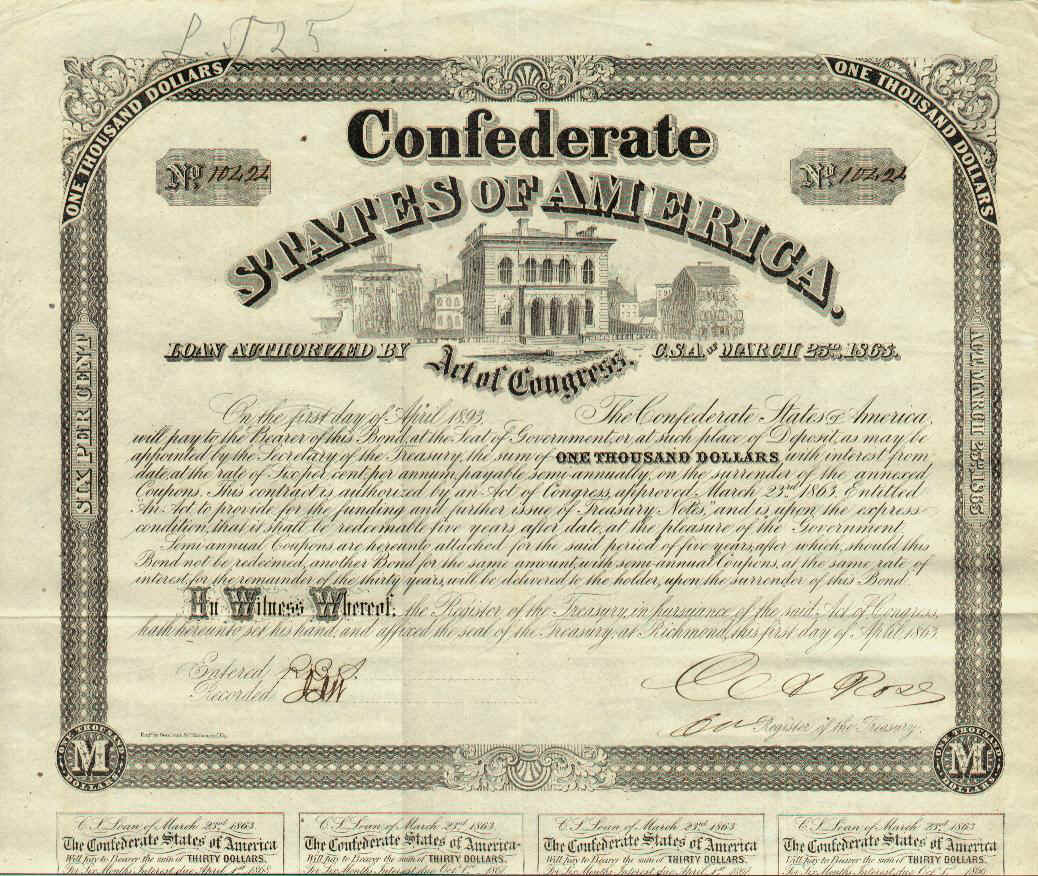 L. J 25
ONE THOUSAND DOLLARS
ONE THOUSAND DOLLARS
Confederate
No. 10424
No. 10424
STATES OF AMERICA.
LOAN AUTHORIZED BY
Act of Congress,
C.S.A. OF MARCH 23RD, 1863.
SIX PER CENT
ACT MARCH 23RD, 1863
On the first day of April 1893, The Confederate States of America,
will pay to the Bearer of this Bond, at the Seat of Government, or at such place of Deposit, as may be
appointed by the Secretary of the Treasury, the sum of ONE THOUSAND DOLLARS, with interest from
date, at the rate of Six per cent, per annum, payable semi-annually, on the surrender of the annexed
Coupons. This contract is authorized by an Act of Congress, approved March 23rd 1863, Entitled
"An Act to provide for the funding and further issue of Treasury Notes," and is upon the express
condition, that it shall be redeemable five years after date, at the pleasure of the Government.
Semi-annual Coupons are hereunto attached for the said period of five years, after which, should this
Bond not be redeemed, another Bond for the same amount, with semi-annual Coupons, at the same rate of
interest, for the remainder of the thirty years, will be delivered to the holder, upon the surrender of this Bond.
In Witness Whereof, the Register of the Treasury, in pursuance of the said Act of Congress,
hath hereunto set his hand, and affixed the seal of the Treasury, at Richmond, this first day of April 1863.
Entered
Recorded
Rose
Register of the Treasury.
ONE THOUSAND
M
DOLLARS
ONE THOUSAND
M
DOLLARS
C.S. Loan of March 23rd 1863
The Confederate States of America
Will pay to Bearer the sum of THIRTY DOLLARS.
For Six Months Interest due April 1st 1868
C.S. Loan of March 23rd 1863
The Confederate States of America
Will pay to Bearer the sum of THIRTY DOLLARS.
For Six Months Interest due Oct. 1st 1867
C.S. Loan of March 23rd 1863
The Confederate States of America
Will pay to Bearer the sum of THIRTY DOLLARS.
For Six Months Interest due April 1st 1867
C.S. Loan of March 23rd 1863
The Confederate States of America
Will pay to Bearer the sum of THIRTY DOLLARS.
For Six Months Interest due Oct. 1st 1866